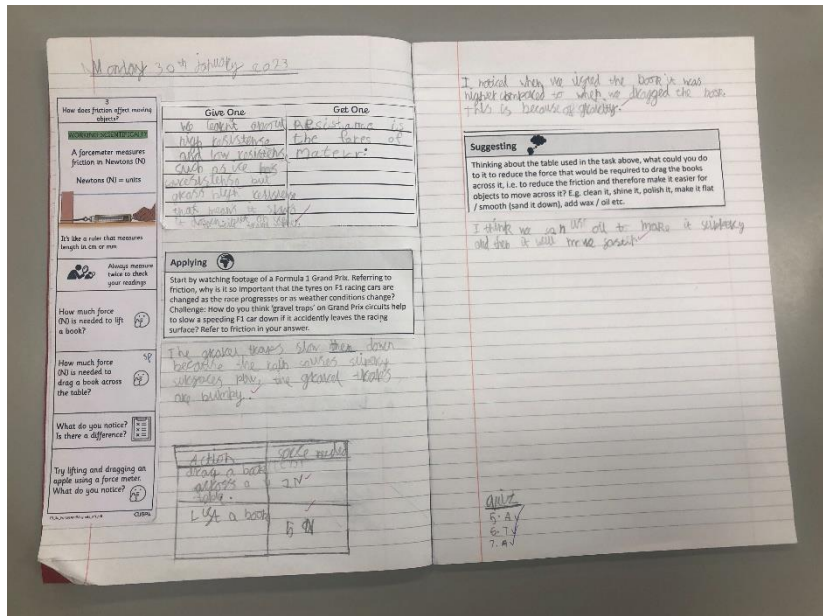 Monday 30th January 2023
3
How does friction affect moving
objects?
WORKING SCIENTIFICALLY
A forcemeter measures
friction in Newtons (N)
Newtons (N) = units
It's like a ruler that measures
length in cm or mm
Always measure
twice to check
your readings
How much force
(N) is needed to lift
a book?
sp
How much force
(N) is needed to
drag a book across
the table?
What do you notice?
Is there a difference?
Try lifting and dragging an
apple using a force meter.
What do you notice?
Give One
We learnt about
high resistense
and low
such as ice has
but
that means it
Get One
Resistance is
the fores of
Applying
Start by watching footage of a Formula 1 Grand Prix. Referring to
friction, why is it so important that the tyres on F1 racing cars are
changed as the race progresses or as weather conditions change?
Challenge: How do you think 'gravel traps' on Grand Prix circuits help
to slow a speeding F1 car down if it accidently leaves the racing
surface? Refer to friction in your answer.
The slow them down
because the causes
the
are bumby.
Action
drag a book
across a
table.
2N
Lift a book
5 N
I noticed when we the book it was
higher compared to when we dragged the book.
This is because of gravity.
Suggesting
Thinking about the table used in the task above, what could you do
to it to reduce the force that would be required to drag the books
across it, i.e. to reduce the friction and therefore make it easier for
objects to move across it? E.g. clean it, shine it, polish it, make it flat
/ smooth (sand it down), add wax / oil etc.
I think we can use oil to make it
and then it will move
quiz
5. A
6. 7
7. A